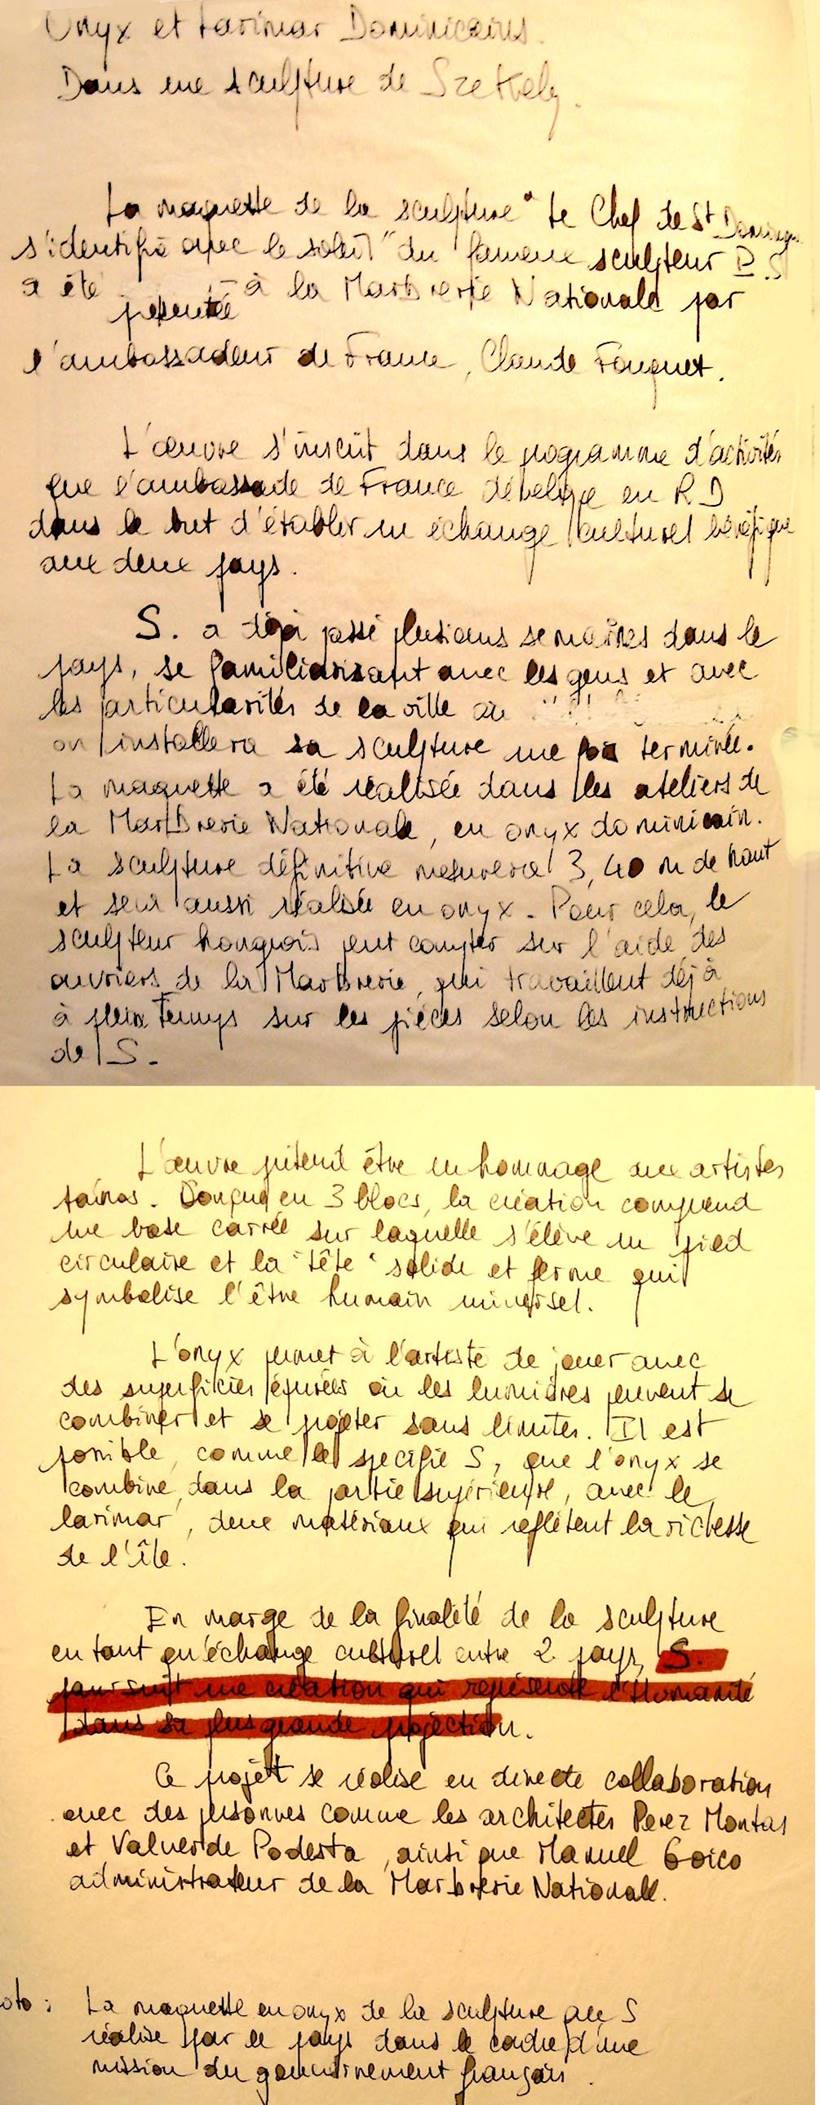 Onyx et Larimar Dominicains.
Dans une sculpture de Szekely.
La maquette de la sculpture "Le Chef de St Domingue
s'identifie avec le soleil" du fameux sculpteur P. S
a été à la Marbrerie Nationale par
présentée
l'ambassadeur de France, Claude Fouquet.
L'œuvre s'inscrit dans le programme d'activités
que l'ambassade de France développe en RD
dans le but d'établir un échange culturel bénéfique
aux deux pays.
S. a déjà passé plusieurs semaines dans le
pays, se familiarisant avec les gens et avec
les particularités de la ville où
on installera sa sculpture une fois terminée.
La maquette a été réalisée dans les ateliers de
la Marbrerie Nationale, en onyx dominicain.
La sculpture définitive mesurera 3,40 m de haut
et sera aussi réalisée en onyx. Pour cela, le
sculpteur hongrois peut compter sur l'aide des
ouvriers de la Marbrerie, qui travaillent déjà
à plein temps sur les pièces selon les instructions
de S.
L'œuvre prétend être un hommage aux artistes
taïnos. Conçue en 3 blocs, la création comprend
une base carrée sur laquelle s'élève un pied
circulaire et la "tête" solide et ferme qui
symbolise l'être humain universel.
L'onyx permet à l'artiste de jouer avec
des superficies épurées où les lumières peuvent se
combiner et se projeter sans limites. Il est
possible, comme le spécifie S, que l'onyx se
combine, dans la partie supérieure, avec le
larimar, deux matériaux qui reflètent la richesse
de l'île.
En marge de la finalité de la sculpture
en tant qu'échange culturel entre 2 pays, S.
poursuit une création qui représente l'Humanité
dans sa plus grande projection.
Ce projet se réalise en directe collaboration
avec des personnes comme les architectes Perez Montas
et Valverde Podesta, ainsi que Manuel Goico
administrateur de la Marbrerie Nationale.
oto : La maquette en onyx de la sculpture que S
réalise par le pays dans le cadre d'une
mission du gouvernement français.